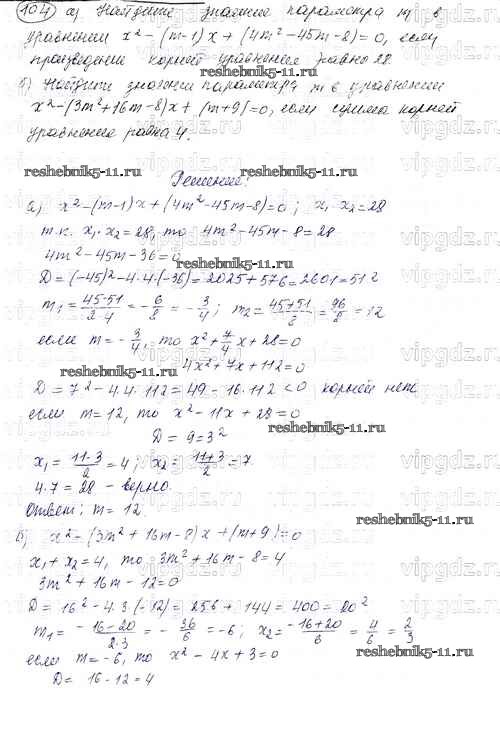 104 а) Найдите значение параметра m в
уравнении x² - (m-1)x + (4m² - 45m - 8) = 0, если
произведение корней уравнения равно 28.
б) Найти значения параметра m в уравнении
x² - (3m² + 16m - 8)x + (m+9) = 0, если сумма корней
уравнения равна 4.
reshebnik5-11.ru
Решение:
а) x² - (m-1)x + (4m² - 45m - 8) = 0; x₁ x₂ = 28
т.к. x₁·x₂ = 28, то 4m² - 45m - 8 = 28
4m² - 45m - 36 = 0
D = (-45)² - 4·4·(-36) = 2025 + 576 = 2601 = 51²
m₁ = (45-51)/(2·4) = -6/8 = -3/4; m₂ = (45+51)/8 = 96/8 = 12
если m = -3/4, то x² + 7/4 x + 28 = 0
4x² + 7x + 112 = 0
D = 7² - 4·4·112 = 49 - 16·112 < 0 корней нет
если m = 12, то x² - 11x + 28 = 0
D = 9 = 3²
x₁ = (11-3)/2 = 4; x₂ = (11+3)/2 = 7
4·7 = 28 - верно.
Ответ: m = 12
б) x² - (3m² + 16m - 8)x + (m+9) = 0
x₁ + x₂ = 4, то 3m² + 16m - 8 = 4
3m² + 16m - 12 = 0
D = 16² - 4·3·(-12) = 256 + 144 = 400 = 20²
m₁ = (-16-20)/(2·3) = -36/6 = -6; x₂ = (-16+20)/6 = 4/6 = 2/3
если m = -6, то x² - 4x + 3 = 0
D = 16 - 12 = 4